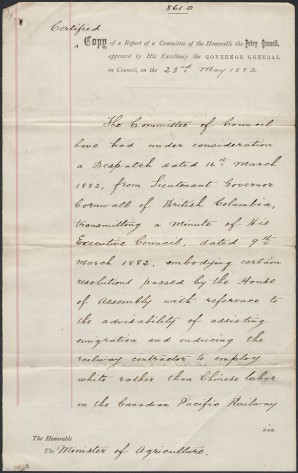 861 D
Certified
a Copy of a Report of a Committee of the Honorable the Privy Council,
approved by His Excellency the GOVERNOR GENERAL
in Council, on the 23rd May 1882
The Committee of Council
have had under consideration
a Despatch dated 16th March
1882, from Lieutenant Governor
Cornwall of British Columbia,
transmitting a Minute of His
Executive Council, dated 9th
March 1882, embodying certain
resolutions passed by the House
of Assembly with reference to
the advisability of assisting
emigration and inducing the
railway contractor to employ
white rather than Chinese labor
on the Canadian Pacific Railway
in
The Honorable
The Minister of Agriculture.